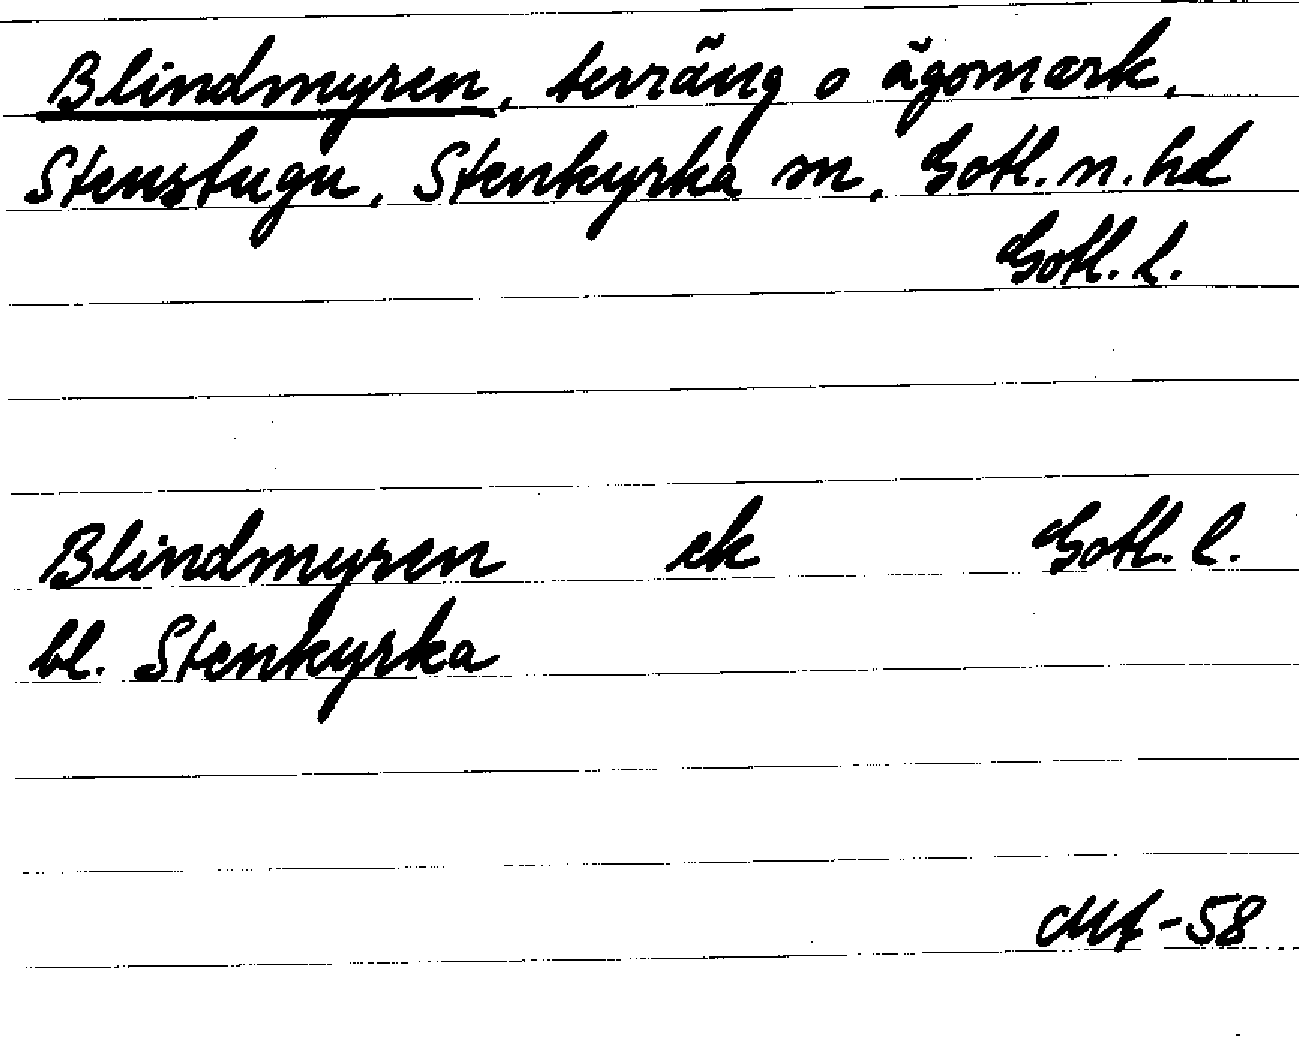 Blindmyren, terräng o ägomark,
Stenstugu, Stenkyrka sn, Gotl. n. hd
Gotl. l.
Blindmyren ek Gotl. l.
bl. Stenkyrka
-58